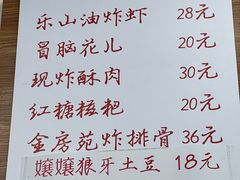 乐山油炸虾 28元
冒脑花儿 20元
现炸酥肉 30元
红糖糍粑 20元
金房苑炸排骨 36元
孃孃狼牙土豆 18元